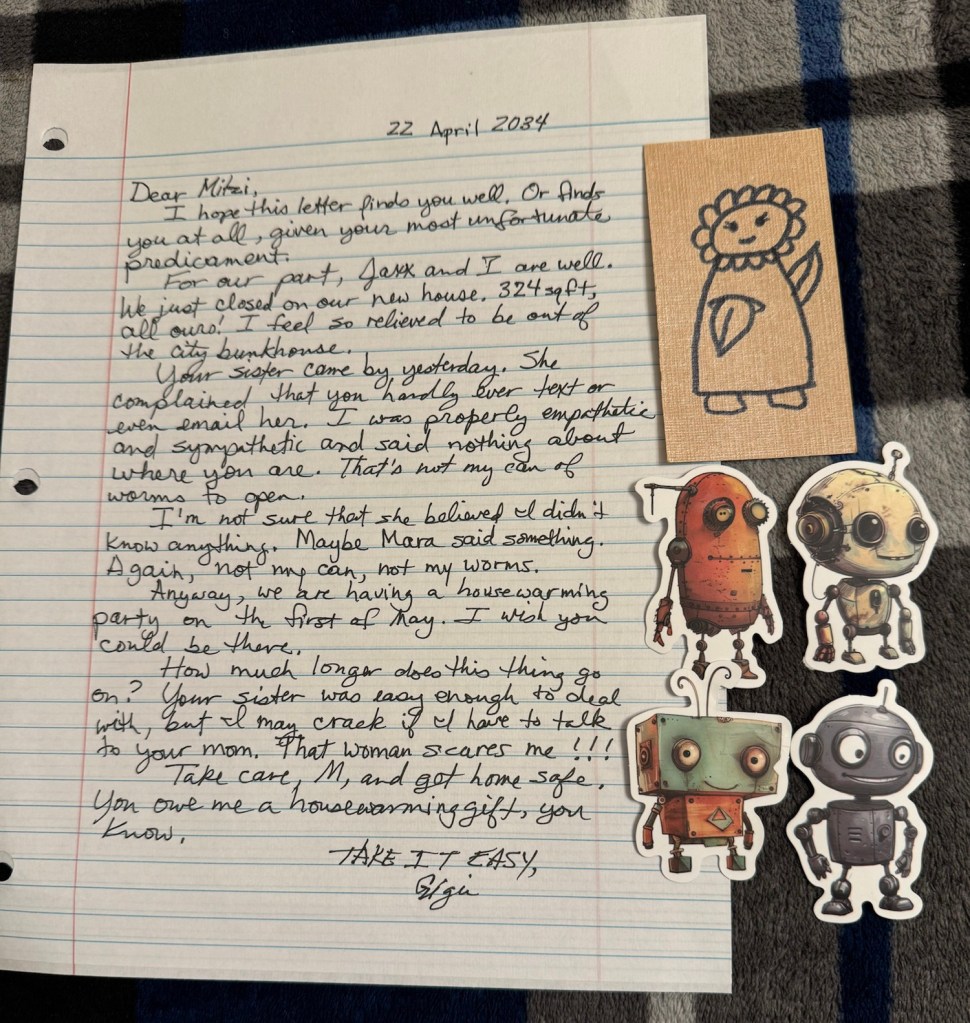 22 April 2034
Dear Mitzi,
I hope this letter finds you well. Or finds
you at all, given your most unfortunate
predicament.
For our part, Jaxx and I are well.
We just closed on our new house. 324 sqft,
all ours! I feel so relieved to be out of
the city bunkhouse.
Your sister came by yesterday. She
complained that you hardly ever text or
even email her. I was properly empathetic
and sympathetic and said nothing about
where you are. That's not my can of
worms to open.
I'm not sure that she believed I didn't
know anything. Maybe Mara said something.
Again, not my can, not my worms.
Anyway, we are having a housewarming
party on the first of May. I wish you
could be there.
How much longer does this thing go
on? Your sister was easy enough to deal
with, but I may crack if I have to talk
to your mom. That woman scares me!!!
Take care, M, and get home safe.
You owe me a housewarming gift, you
know.
TAKE IT EASY,
Gigii